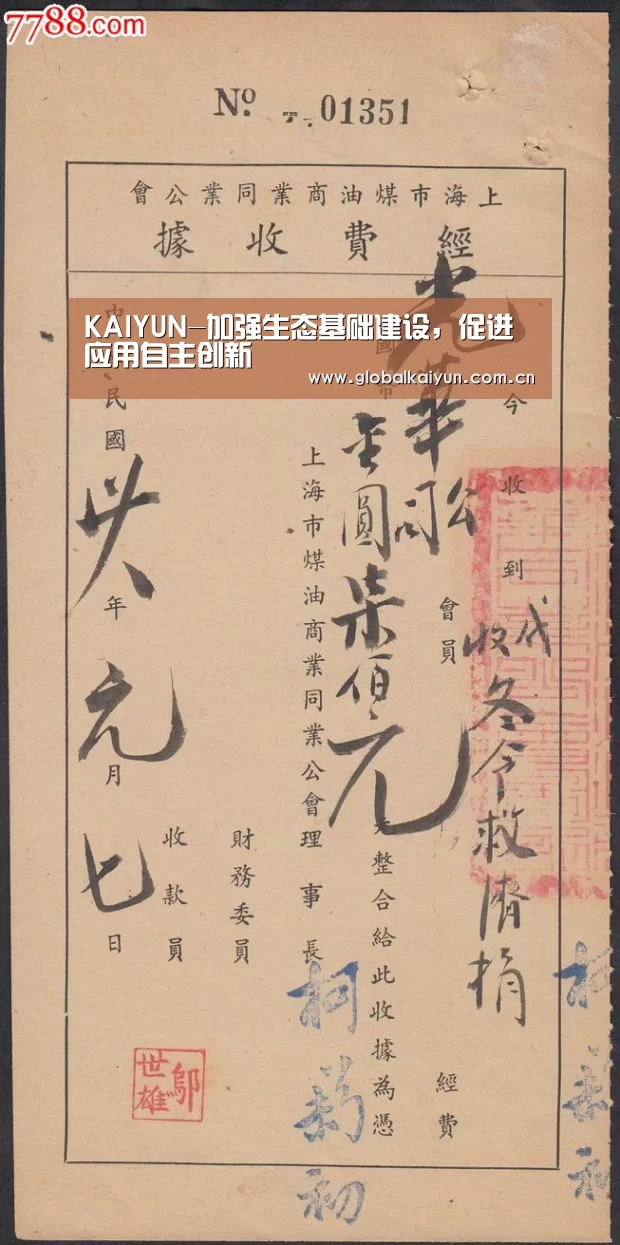 7788.com
No. 01351
上海市煤油商業同業公會
經費收據
KAIYUN-加强生态基础建设，促进
应用自主创新
www.globalkaiyun.com.cn
今收到
代收冬令救濟捐
光華公司
會員
經費
國幣
金圓柒佰元
整合給此收據為憑
上海市煤油商業同業公會理事長
柯菊初
財務委員
收款員
鄔世雄
中華民國卅八年元月七日